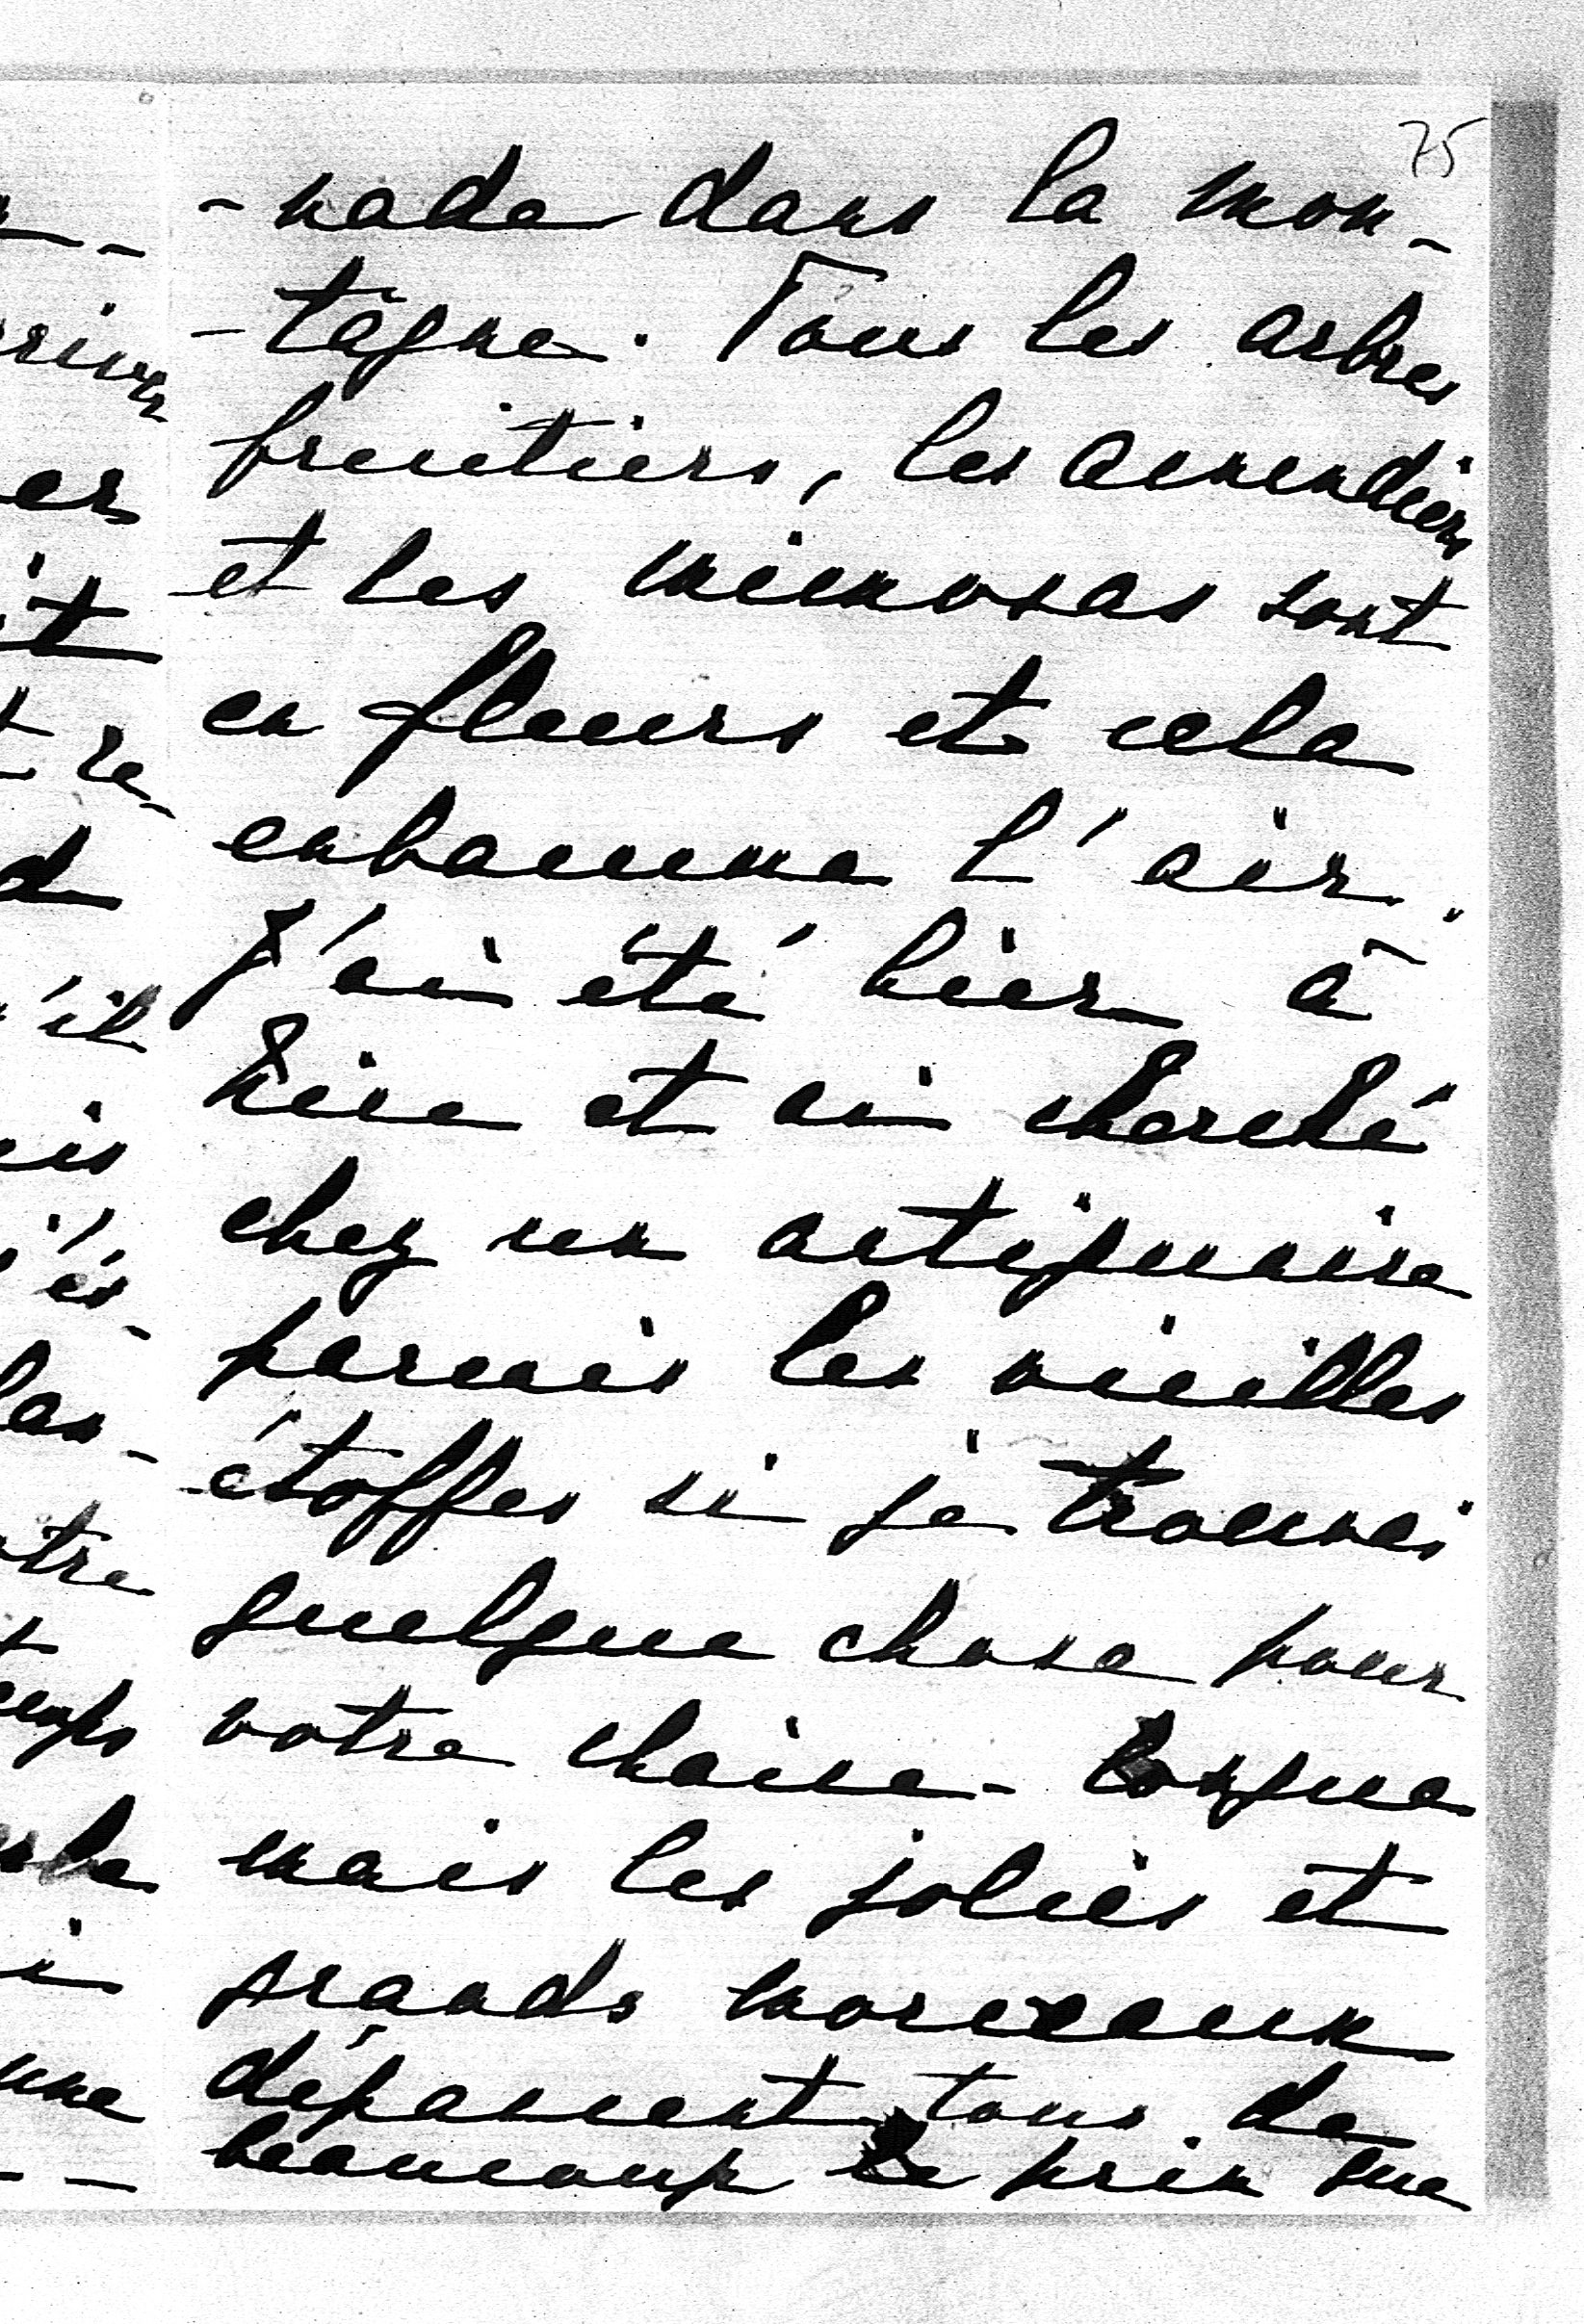 75
-nade dans la mon-
-tagne. Tous les arbres
fruitiers, les amendiers
et les mimosas sont
en fleurs et cela
enbaume l'air.
J'ai été hier à
Nice et ai cherché
chez un antiquaire
parmis les vieilles
étoffes si je trouvai
quelque chose pour
votre chaise-longue
mais les jolies et
grands morceaux
dépassent tous de
beaucoup le prix que